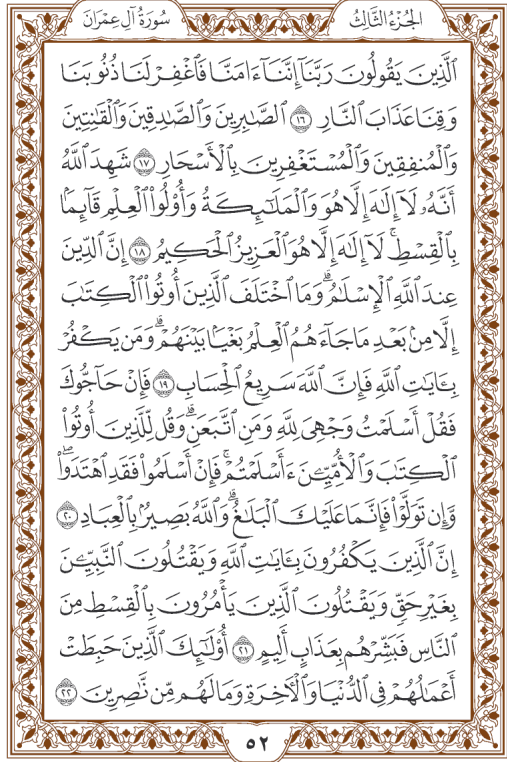 سُورَةُ آلِ عِمْرَانَ الجُزْءُ الثَّالِثُ
ٱلَّذِينَ يَقُولُونَ رَبَّنَآ إِنَّنَآ ءَامَنَّا فَٱغْفِرْ لَنَا ذُنُوبَنَا
وَقِنَا عَذَابَ ٱلنَّارِ ١٦ ٱلصَّٰبِرِينَ وَٱلصَّٰدِقِينَ وَٱلْقَٰنِتِينَ
وَٱلْمُنفِقِينَ وَٱلْمُسْتَغْفِرِينَ بِٱلْأَسْحَارِ ١٧ شَهِدَ ٱللَّهُ
أَنَّهُۥ لَآ إِلَٰهَ إِلَّا هُوَ وَٱلْمَلَٰٓئِكَةُ وَأُو۟لُوا۟ ٱلْعِلْمِ قَآئِمًۢا
بِٱلْقِسْطِۚ لَآ إِلَٰهَ إِلَّا هُوَ ٱلْعَزِيزُ ٱلْحَكِيمُ ١٨ إِنَّ ٱلدِّينَ
عِندَ ٱللَّهِ ٱلْإِسْلَٰمُۗ وَمَا ٱخْتَلَفَ ٱلَّذِينَ أُوتُوا۟ ٱلْكِتَٰبَ
إِلَّا مِنۢ بَعْدِ مَا جَآءَهُمُ ٱلْعِلْمُ بَغْيًۢا بَيْنَهُمْۗ وَمَن يَكْفُرْ
بِـَٔايَٰتِ ٱللَّهِ فَإِنَّ ٱللَّهَ سَرِيعُ ٱلْحِسَابِ ١٩ فَإِنْ حَآجُّوكَ
فَقُلْ أَسْلَمْتُ وَجْهِىَ لِلَّهِ وَمَنِ ٱتَّبَعَنِۗ وَقُل لِّلَّذِينَ أُوتُوا۟
ٱلْكِتَٰبَ وَٱلْأُمِّيِّـۧنَ ءَأَسْلَمْتُمْۚ فَإِنْ أَسْلَمُوا۟ فَقَدِ ٱهْتَدَوا۟ۖ
وَّإِن تَوَلَّوْا۟ فَإِنَّمَا عَلَيْكَ ٱلْبَلَٰغُۗ وَٱللَّهُ بَصِيرٌۢ بِٱلْعِبَادِ ٢٠
إِنَّ ٱلَّذِينَ يَكْفُرُونَ بِـَٔايَٰتِ ٱللَّهِ وَيَقْتُلُونَ ٱلنَّبِيِّـۧنَ
بِغَيْرِ حَقٍّ وَيَقْتُلُونَ ٱلَّذِينَ يَأْمُرُونَ بِٱلْقِسْطِ مِنَ
ٱلنَّاسِ فَبَشِّرْهُم بِعَذَابٍ أَلِيمٍ ٢١ أُو۟لَٰٓئِكَ ٱلَّذِينَ حَبِطَتْ
أَعْمَٰلُهُمْ فِى ٱلدُّنْيَا وَٱلْءَاخِرَةِ وَمَا لَهُم مِّن نَّٰصِرِينَ ٢٢
٥٢